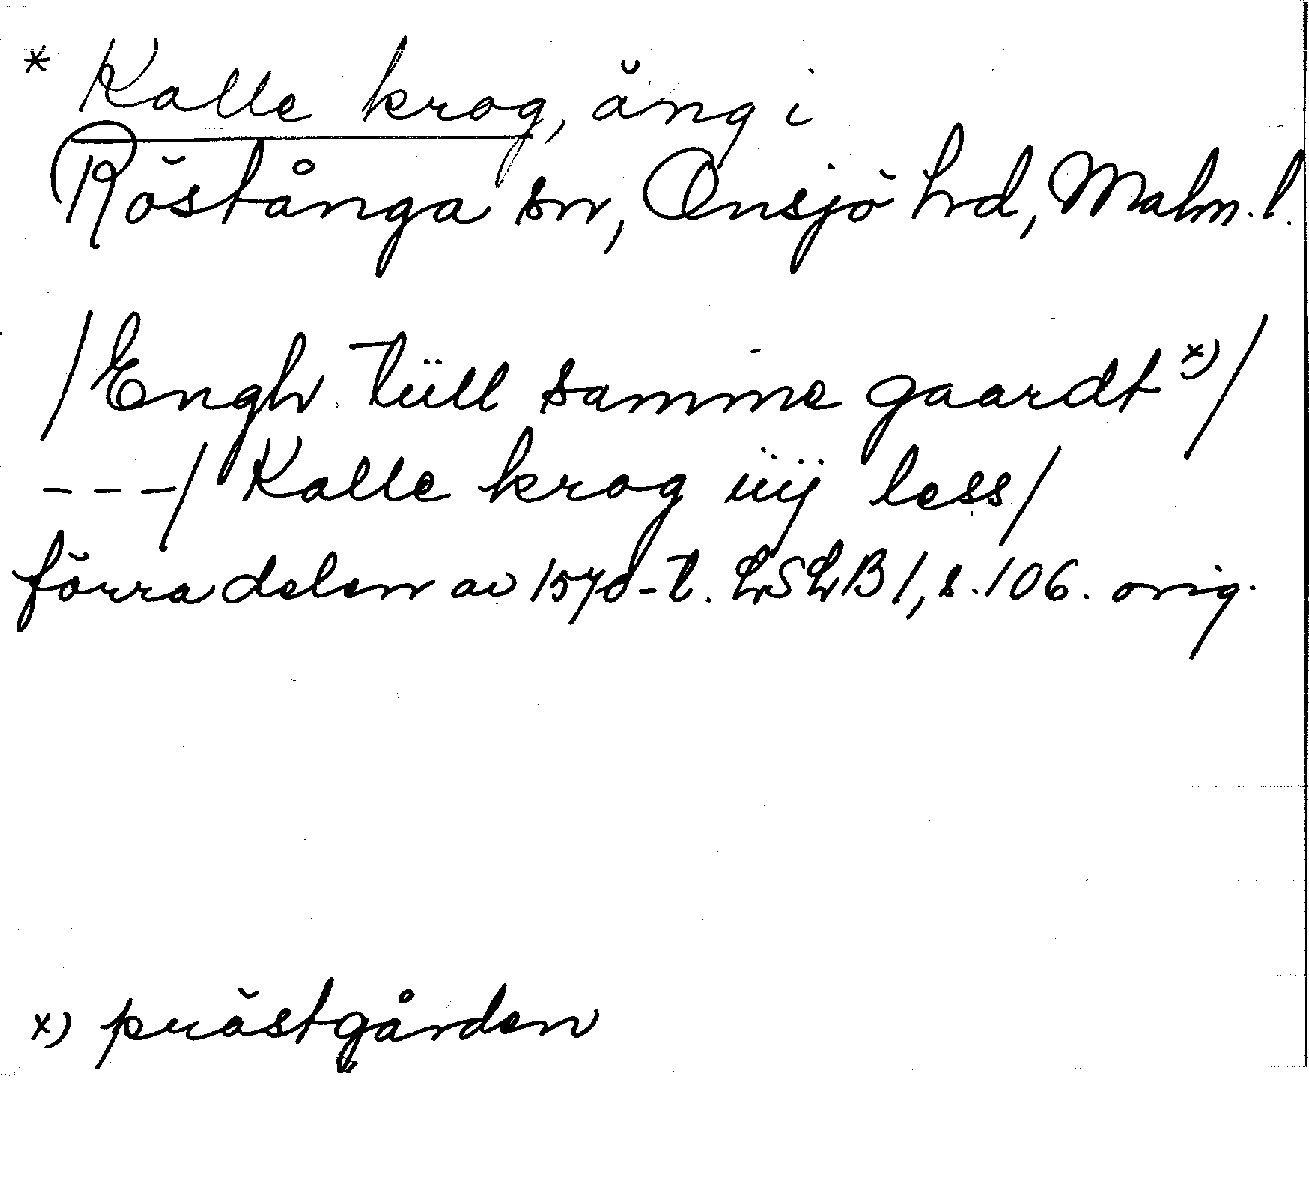 * Kalle krog, äng i
Röstånga sn, Onsjö hd, Malm. l.
/Engh tüll samme gaardt x)/
---/ Kalle krog iiij less/
förra delen av 1570-t. LSLB 1, s. 106. orig.
x) prästgården